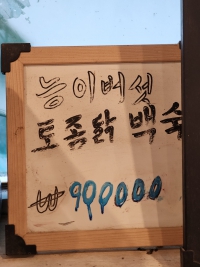 능이버섯
토종닭 백숙
₩900000